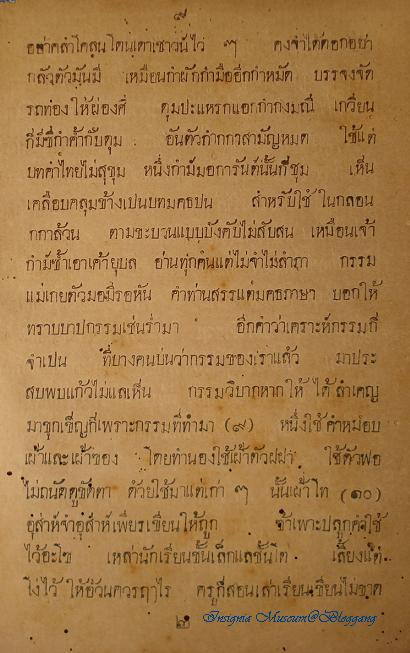 ๙
อย่าคลำไคลนไดนเดาเชาวน์ไว่ ๆ คงจำได้ดอกอย่า
กลัวตัวมันมี เหมือนกำผักกำมืออีกกำหมัด บรรจงจัด
รถท่องให้ผ่องศี ตุมปะแหรกแอกกำกงมณี เกวียน
ก็มีซี่กำค้ำกับดุม อันตัวกำกกาสามัญหมด ใช้แต่
บทคำไทยไม่สุขุม หนึ่งกำมัมอการันต์นั้นก็ชุม เห็น
เคลือบคลุมข้างเปนบทมคธปน สำหรับใช้ในกลอน
กกาล้วน ตามขะบวนแบบบังคับไม่สับสน เหมือนเจ้า
กำมัช้ำเอาเค้ายุบล อ่านทุกคนแต่ไม่จำไม่ลำภา กรรม
แม่เกยตัวมอมิรอหัน คำท่านสรรแต่มคธภาษา บอกให้
ทราบบาปกรรมเช่นร่ำมา อีกคำว่าเคราะห์กรรมก็
จำเปน ที่บางคนบ่นว่ากรรมของเราแล้ว มาประ
สบพบแก้วไม่แลเห็น กรรมวิบากหากให้ได้ลำเคญ
มาขุกเข็ญก็เพราะกรรมที่ทำมา (๙) หนึ่งใช้คำหมอบ
เฝ้าและเฝ้าของ โดยทำนองใช้เฝ้าตัวฝฝา ใช้ตัวพอ
ไม่ถนัดดูขัดตา ด้วยใช้มาแต่เก่า ๆ นั้นเฝ้าไท (๑๐)
อุส่าห์จำอุส่าห์เพียรเขียนให้ถูก จำเพาะปลูกคำใช้
ไว้อะไข เหล่านักเรียนชั้นเล็กแลชั้นโต เลี้ยงแต่
โง่ไว้ให้อ้วนควรฤๅไร ครูก็สอนเล่าเรียนเขียนไม่ขาด
๒
Insignia Museum@Bloggang